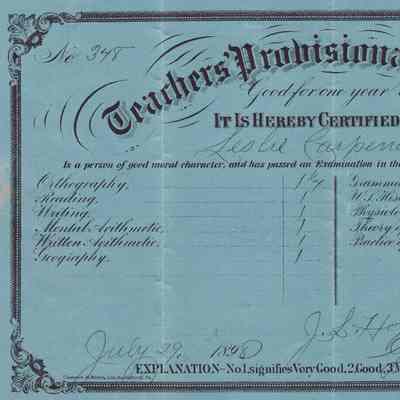 No. 348
Teachers' Provisional
Good for one year
IT IS HEREBY CERTIFIED
Leslie Carpen
Is a person of good moral character, and has passed an Examination in the
Orthography, 1½ Gramma
Reading, 1 U.S. His
Writing, 1 Physiolo
Mental Arithmetic, 1 Theory o
Written Arithmetic, 1 Practice o
Geography, 1
July 29, 1898 J. S. Ho
EXPLANATION—No 1, signifies Very Good, 2, Good, 3, M